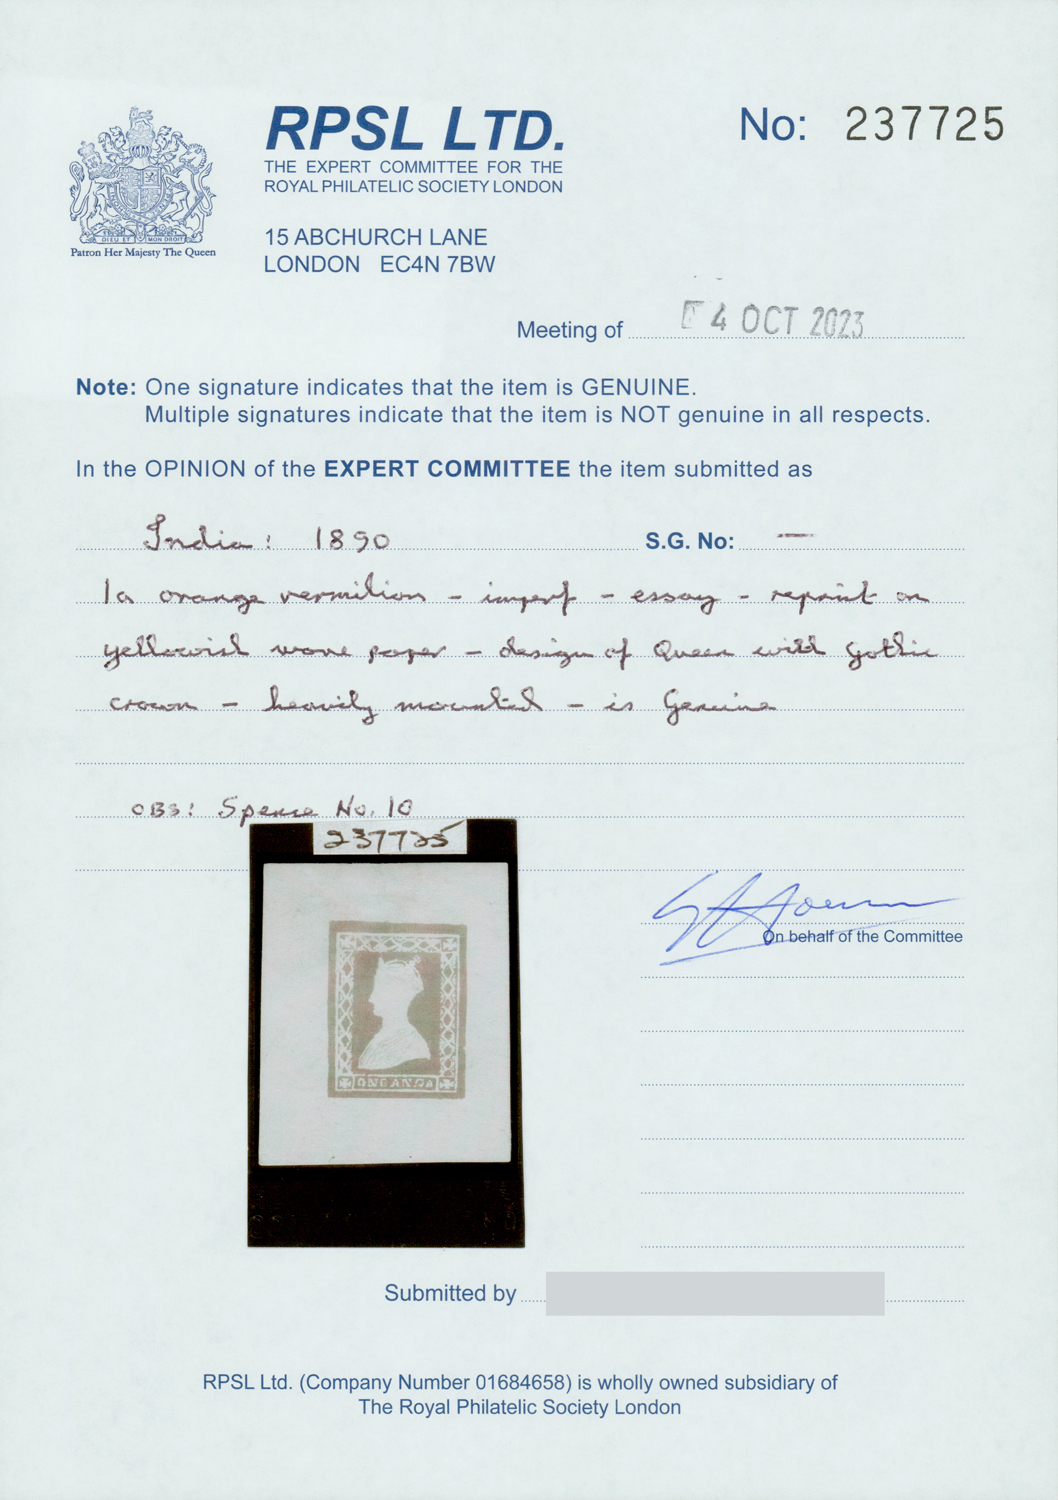 RPSL LTD.
THE EXPERT COMMITTEE FOR THE
ROYAL PHILATELIC SOCIETY LONDON
No: 237725
DIEU ET MON DROIT
Patron Her Majesty The Queen
15 ABCHURCH LANE
LONDON EC4N 7BW
Meeting of 4 OCT 2023
Note: One signature indicates that the item is GENUINE.
Multiple signatures indicate that the item is NOT genuine in all respects.
In the OPINION of the EXPERT COMMITTEE the item submitted as
India: 1890 S.G. No: —
1a orange vermilion - imperf - essay - reprint on
yellowish wove paper - design of Queen with gothic
crown - heavily mounted - is Genuine
OBS: Spence No. 10
237725
ONE ANNA
On behalf of the Committee
Submitted by
RPSL Ltd. (Company Number 01684658) is wholly owned subsidiary of
The Royal Philatelic Society London